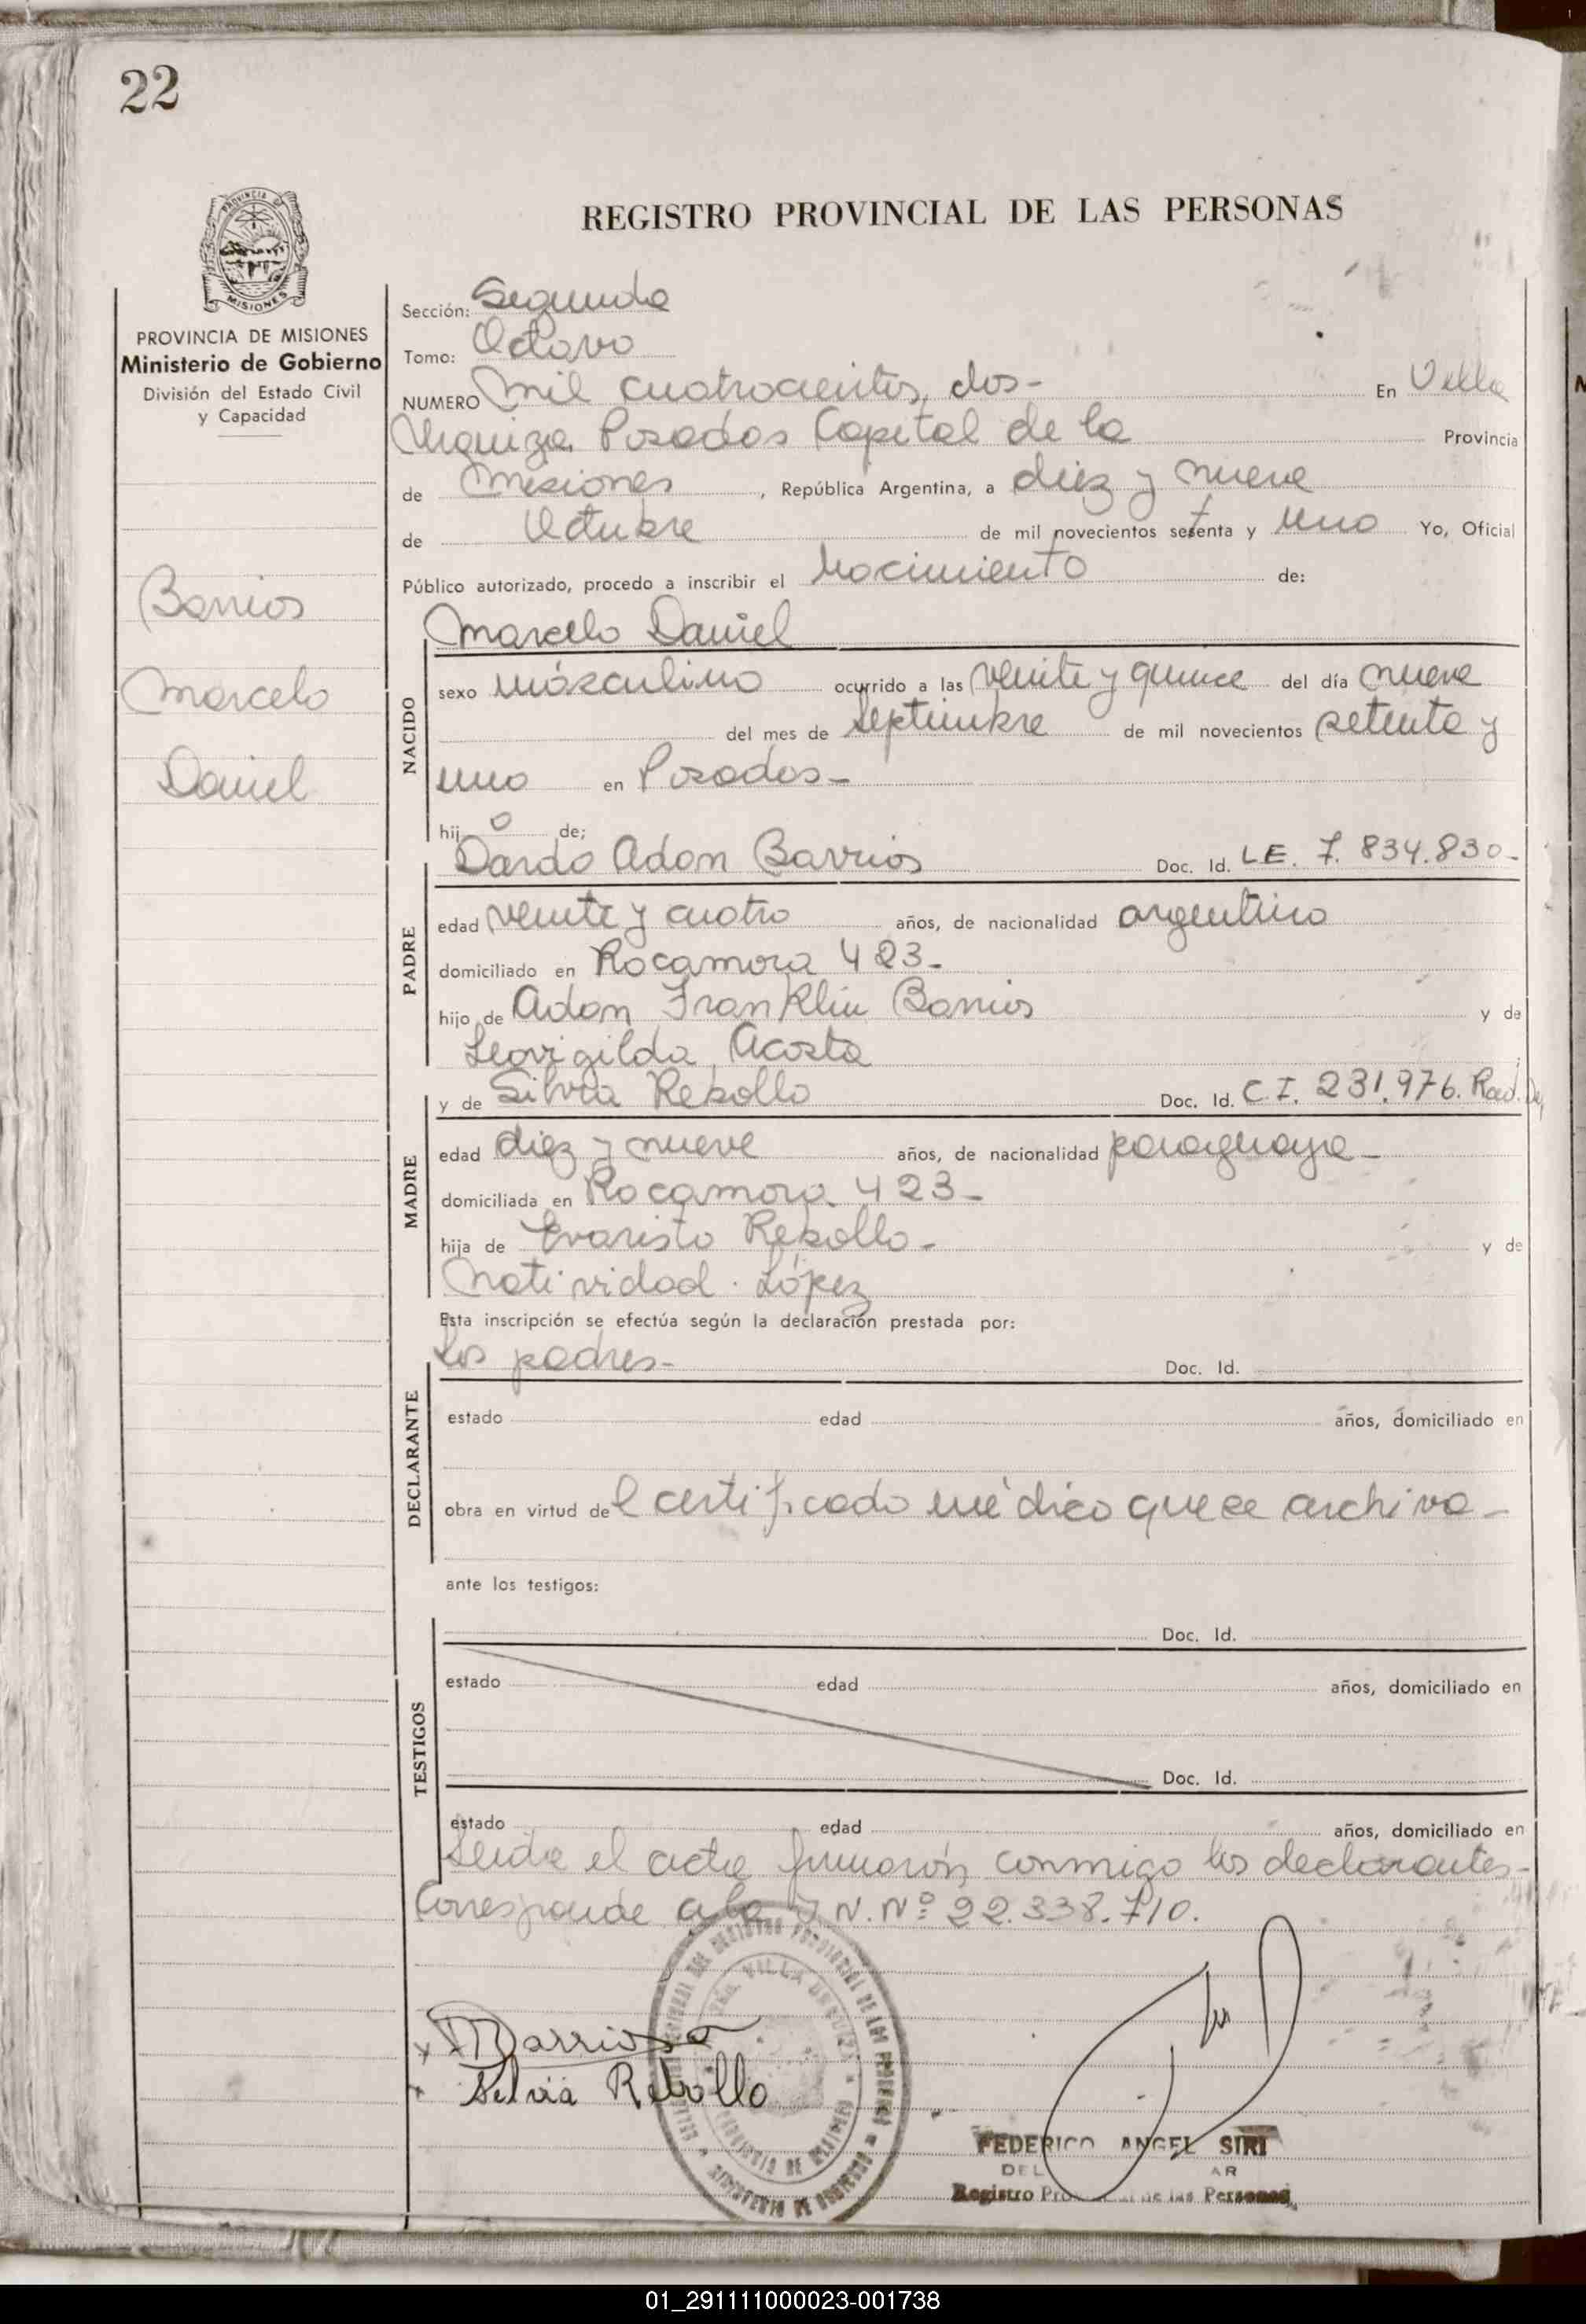 22
REGISTRO PROVINCIAL DE LAS PERSONAS
PROVINCIA DE MISIONES
Ministerio de Gobierno
División del Estado Civil
y Capacidad
Barrios
Marcelo
Daniel
Sección: Segunda
Tomo: Octavo
NUMERO Mil cuatrocientos dos- En Villa
Urquiza Posadas Capital de la Provincia
de Misiones, República Argentina, a diez y nueve
de Octubre de mil novecientos setenta y uno Yo, Oficial
Público autorizado, procedo a inscribir el Nacimiento de:
Marcelo Daniel
NACIDO
sexo másculino ocurrido a las veinte y quince del día nueve
del mes de Septiembre de mil novecientos setenta y
uno en Posadas-
hij o de;
Dardo Adon Barrios Doc. Id. L.E. 7.834.830-
PADRE
edad veinte y cuatro años, de nacionalidad argentino
domiciliado en Rocamora 423-
hijo de Adon Franklin Barrios y de
Leovigilda Acosta
y de Silvia Rebollo Doc. Id. C.I. 231.976. Rad.
MADRE
edad diez y nueve años, de nacionalidad paraguaya-
domiciliada en Rocamora 423-
hija de Evaristo Rebollo- y de
Natividad López
Esta inscripción se efectúa según la declaración prestada por:
los padres- Doc. Id.
DECLARANTE
estado edad años, domiciliado en
obra en virtud del certificado médico que se archiva-
ante los testigos:
Doc. Id.
TESTIGOS
estado edad años, domiciliado en
Doc. Id.
estado edad años, domiciliado en
Leida el acta firmarón conmigo los declarantes-
Corresponde a la I N. Nº 22.338.710.
Barrios
Silvia Rebollo
FEDERICO ANGEL SIRI
Registro de las Personas
01_291111000023-001738